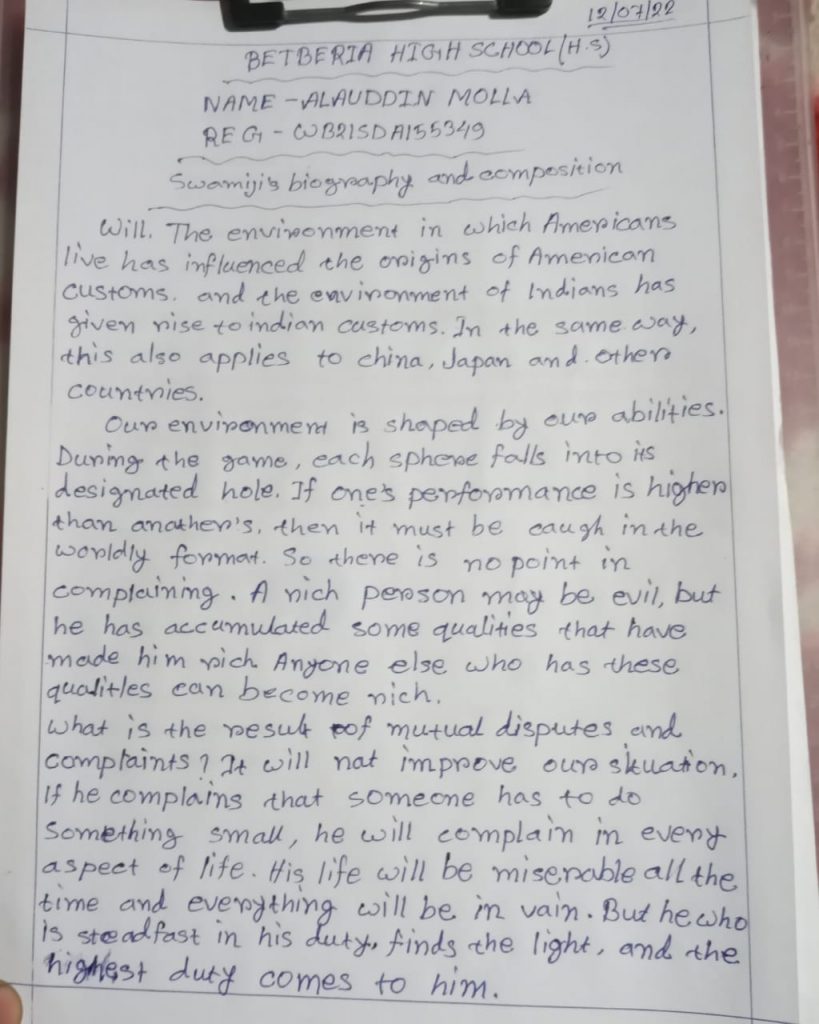 12/07/22
BETBERIA HIGH SCHOOL (H.S)
NAME - ALAUDDIN MOLLA
REG - WB21SDA155349
Swamiji's biography and composition
Will. The environment in which Americans
live has influenced the origins of American
customs. and the environment of Indians has
given rise to indian customs. In the same way,
this also applies to china, Japan and other
countries.
Our environment is shaped by our abilities.
During the game, each sphere falls into its
designated hole. If one's performance is higher
than anather's, then it must be caugh in the
worldly format. So there is no point in
complaining. A rich person may be evil, but
he has accumulated some qualities that have
made him rich Anyone else who has these
qualitles can become rich.
What is the result of mutual disputes and
complaints? It will nat improve our skuation.
If he complains that someone has to do
Something small, he will complain in every
aspect of life. His life will be miserable all the
time and everything will be in vain. But he who
is steadfast in his duty, finds the light, and the
highest duty comes to him.